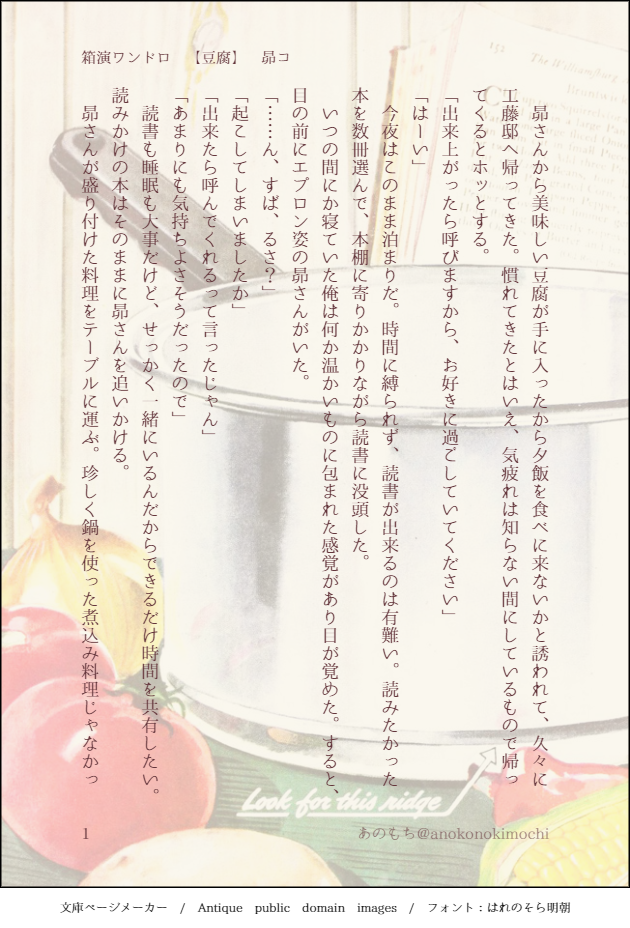 箱演ワンドロ　【豆腐】　昴コ
　昴さんから美味しい豆腐が手に入ったから夕飯を食べに来ないかと誘われて、久々に
工藤邸へ帰ってきた。慣れてきたとはいえ、気疲れは知らない間にしているもので帰っ
てくるとホッとする。
「出来上がったら呼びますから、お好きに過ごしていてください」
「はーい」
　今夜はこのまま泊まりだ。時間に縛られず、読書が出来るのは有難い。読みたかった
本を数冊選んで、本棚に寄りかかりながら読書に没頭した。
　いつの間にか寝ていた俺は何か温かいものに包まれた感覚があり目が覚めた。すると、
目の前にエプロン姿の昴さんがいた。
「……ん、すば、るさ？」
「起こしてしまいましたか」
「出来たら呼んでくれるって言ったじゃん」
「あまりにも気持ちよさそうだったので」
　読書も睡眠も大事だけど、せっかく一緒にいるんだからできるだけ時間を共有したい。
読みかけの本はそのままに昴さんを追いかける。
　昴さんが盛り付けた料理をテーブルに運ぶ。珍しく鍋を使った煮込み料理じゃなかっ
Look for this ridge
1
あのもち@anokonokimochi
文庫ページメーカー　/　Antique　public　domain　images　/　フォント：はれのそら明朝